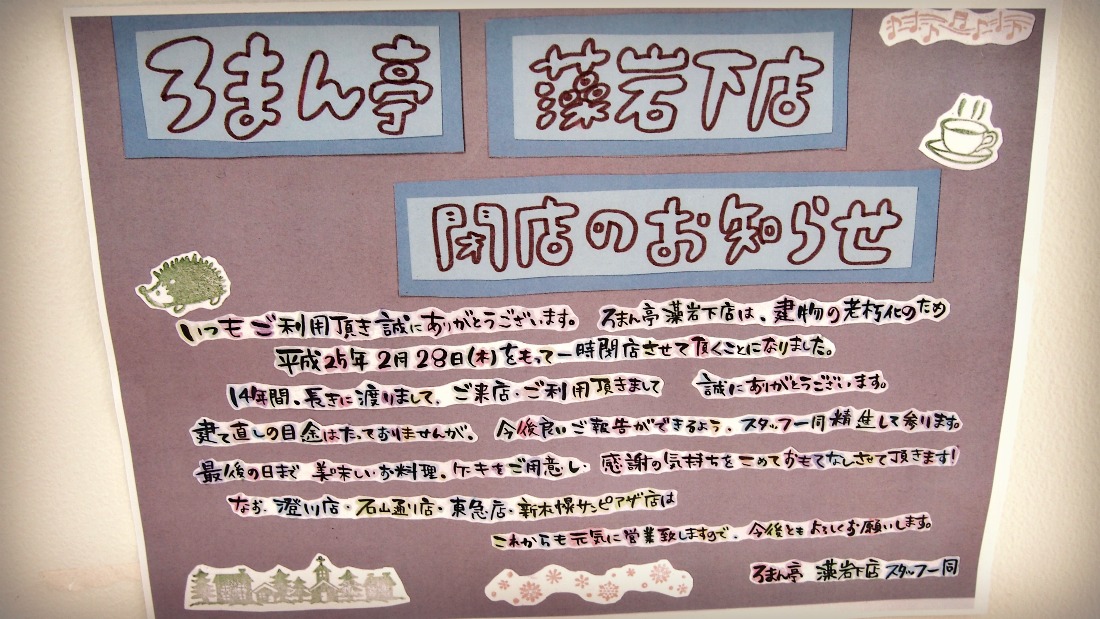 ろまん亭 藻岩下店
閉店のお知らせ
いつもご利用頂き誠にありがとうございます。 ろまん亭藻岩下店は、建物の老朽化のため
平成25年2月28日(木)をもって一時閉店させて頂くことになりました。
14年間、長きに渡りまして、ご来店・ご利用頂きまして 誠にありがとうございます。
建て直しの目金はたっておりませんが、 今後良いご報告ができるよう、スタッフ一同精進して参ります。
最後の日まで 美味しいお料理、ケーキをご用意し 感謝の気持ちをこめておもてなしさせて頂きます!
なお、澄川店・石山通り店・東急店・新札幌サンピアザ店は
これからも元気に営業致しますので、今後ともよろしくお願いします。
ろまん亭 藻岩下店 スタッフ一同